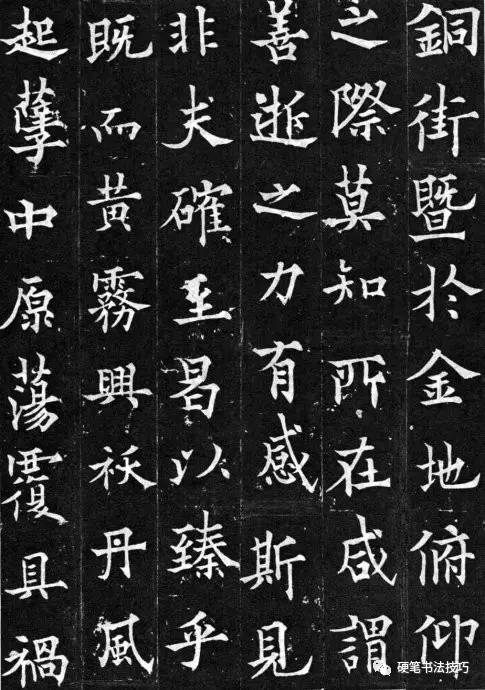 銅街暨於金地俯仰
之際莫知所在咸謂
善逝之力有感斯見
非夫確至昌以臻乎
既而黃霧興祅丹風
起孽中原蕩覆具禍
硬笔书法技巧